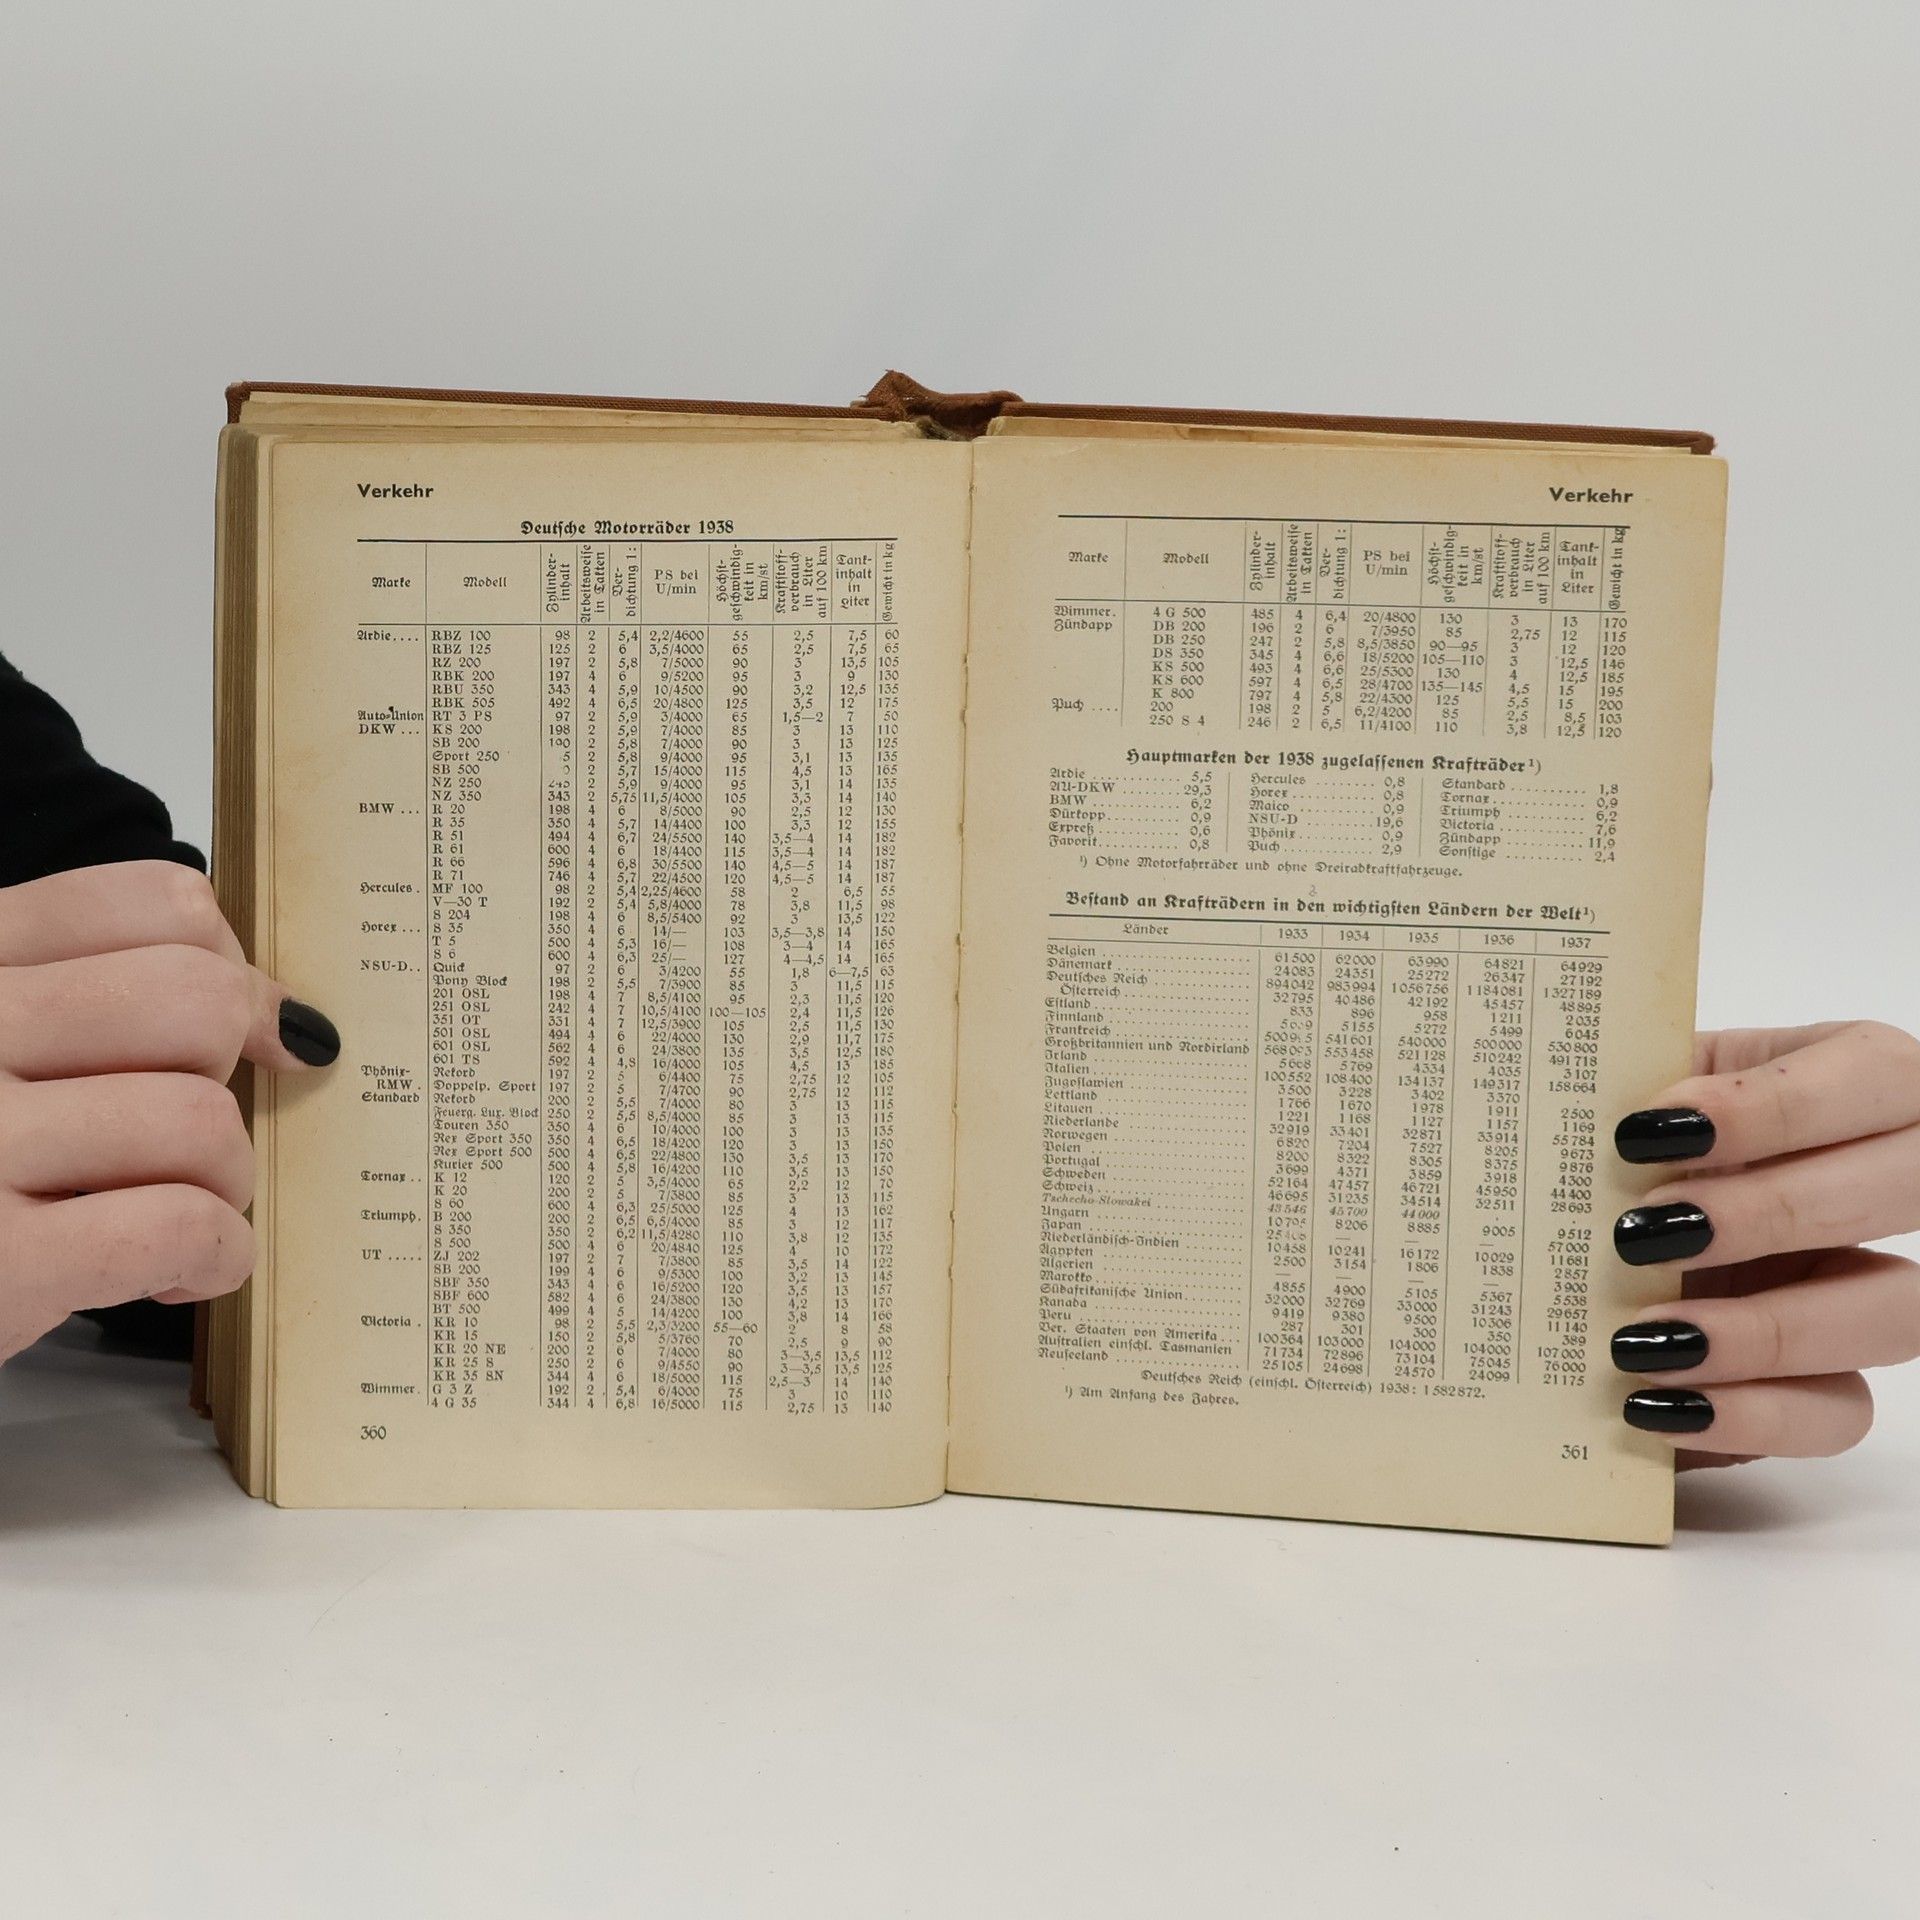 Verkehr
Deutsche Motorräder 1938
Marke Modell Zylinder-inhalt Arbeitsweise in Takten Ver-dichtung 1: PS bei U/min Höchst-geschwindig-keit in km/st Kraftstoff-verbrauch in Liter auf 100 km Tank-inhalt in Liter Gewicht in kg
Ardie.... RBZ 100 98 2 5,4 2,2/4600 55 2,5 7,5 60
RBZ 125 125 2 6 3,5/4000 65 2,5 7,5 65
RZ 200 197 2 5,8 7/5000 90 3 13,5 105
RBK 200 197 4 6 9/5200 95 3 9 130
RBU 350 343 4 5,9 10/4500 90 3,2 12,5 135
RBK 505 492 4 6,5 20/4800 125 3,5 12 175
Auto-Union RT 3 PS 97 2 5,9 3/4000 65 1,5—2 7 50
DKW ... KS 200 198 2 5,9 7/4000 85 3 13 110
SB 200 2 5,8 7/4000 90 3 13 125
Sport 250 2 5,8 9/4000 95 3,1 13 135
SB 500 2 5,7 15/4000 115 4,5 13 165
NZ 250 2 5,9 9/4000 95 3,1 14 135
NZ 350 343 2 5,75 11,5/4000 105 3,3 14 140
BMW ... R 20 198 4 6 8/5000 90 2,5 12 130
R 35 350 4 5,7 14/4400 100 3,3 12 155
R 51 494 4 6,7 24/5500 140 3,5—4 14 182
R 61 600 4 6 18/4400 115 3,5—4 14 182
R 66 596 4 6,8 30/5500 140 4,5—5 14 187
R 71 746 4 5,7 22/4500 120 4,5—5 14 187
Hercules . MF 100 98 2 5,4 2,25/4600 58 2 6,5 55
V—30 T 192 2 5,4 5,8/4000 78 3,8 11,5 98
S 204 198 4 6 8,5/5400 92 3 13,5 122
Horex ... S 35 350 4 6 14/— 103 3,5—3,8 14 150
T 5 500 4 5,3 16/— 108 3—4 14 165
S 6 600 4 6,3 25/— 127 4—4,5 14 165
NSU-D.. Quick 97 2 6 3/4200 55 1,8 6—7,5 63
Pony Block 198 2 5,5 7/3900 85 3 11,5 115
201 OSL 198 4 7 8,5/4100 95 2,3 11,5 120
251 OSL 242 4 7 10,5/4100 100—105 2,4 11,5 126
351 OT 331 4 7 12,5/3900 105 2,5 11,5 130
501 OSL 494 4 6 22/4000 130 2,9 11,7 175
601 OSL 562 4 6 24/3800 135 3,5 12,5 180
601 TS 592 4 4,8 16/4000 105 4,5 13 185
Phönix- Rekord 197 2 5 6/4400 75 2,75 12 105
RMW . Doppelp. Sport 197 2 5 7/4700 90 2,75 12 112
Standard Rekord 200 2 5,5 7/4000 80 3 13 115
Feuerg. Lux. Block 250 2 5,5 8,5/4000 85 3 13 115
Touren 350 350 4 6 10/4000 100 3 13 135
Rex Sport 350 350 4 6,5 18/4200 120 3 13 150
Rex Sport 500 500 4 6,5 22/4800 130 3,5 13 170
Kurier 500 500 4 5,8 16/4200 110 3,5 13 150
Tornax .. K 12 120 2 5 3,5/4000 65 2,2 12 70
K 20 200 2 5 7/3800 85 3 13 115
S 60 600 4 6,3 25/5000 125 4 13 162
Triumph. B 200 200 2 6,5 6,5/4000 85 3 12 117
S 350 350 2 6,2 11,5/4280 110 3,8 12 135
S 500 500 4 6 20/4840 125 4 10 172
UT ..... ZJ 202 197 2 7 7/3800 85 3,5 14 122
SB 200 199 4 6 9/5300 100 3,2 13 145
SBF 350 343 4 6 16/5200 120 3,5 13 157
SBF 600 582 4 6 24/3800 130 4,2 13 170
BT 500 499 4 5 14/4200 100 3,8 14 166
Victoria . KR 10 98 2 5,5 2,3/3200 55—60 2 8 58
KR 15 150 2 5,8 5/3760 70 2,5 9 90
KR 20 NE 200 2 6 7/4000 80 3—3,5 13,5 112
KR 25 S 250 2 6 9/4550 90 3—3,5 13,5 125
KR 35 SN 344 4 6 18/5000 115 2,5—3 14 140
Wimmer. G 3 Z 192 2 5,4 6/4000 75 3 10 110
4 G 35 344 4 6,8 16/5000 115 2,75 13 140
360
Verkehr
Marke Modell Zylinder-inhalt Arbeitsweise in Takten Ver-dichtung 1: PS bei U/min Höchst-geschwindig-keit in km/st Kraftstoff-verbrauch in Liter auf 100 km Tank-inhalt in Liter Gewicht in kg
Wimmer. 4 G 500 485 4 6,4 20/4800 130 3 13 170
Zündapp DB 200 196 2 6 7/3950 85 2,75 12 115
DB 250 247 2 5,8 8,5/3850 90—95 3 12 120
DS 350 345 4 6,6 18/5200 105—110 3 12,5 146
KS 500 493 4 6,6 25/5300 130 4 12,5 185
KS 600 597 4 6,5 28/4700 135—145 4,5 15 195
K 800 797 4 5,8 22/4300 125 5,5 15 200
Puch .... 200 198 2 5 6,2/4200 85 2,5 8,5 103
250 S 4 246 2 6,5 11/4100 110 3,8 12,5 120
Hauptmarken der 1938 zugelassenen Krafträder¹)
Ardie ........... 5,5 Hercules ........ 0,8 Standard ........ 1,8
AU-DKW ........ 29,3 Horex .......... 0,8 Tornax.......... 0,9
BMW ........... 6,2 Maico .......... 0,9 Triumph ........ 6,2
Dürkopp......... 0,9 NSU-D ......... 19,6 Victoria ......... 7,6
Expreß .......... 0,6 Phönix.......... 0,9 Zündapp ........ 11,9
Favorit.......... 0,8 Puch............ 2,9 Sonstige ......... 2,4
¹) Ohne Motorfahrräder und ohne Dreiradkraftfahrzeuge.
Bestand an Krafträdern in den wichtigsten Ländern der Welt¹)
Länder 1933 1934 1935 1936 1937
Belgien 61500 62000 63990 64821 64929
Dänemark 24083 24351 25272 26347 27192
Deutsches Reich 894042 983994 1056756 1184081 1327189
Österreich 32795 40486 42192 45457 48895
Estland 833 896 958 1211 2035
Finnland 5155 5272 5499 6045
Frankreich 541601 540000 500000 530800
Großbritannien und Nordirland 553458 521128 510242 491718
Irland 5769 4334 4035 3107
Italien 100552 108400 134137 149317 158664
Jugoslawien 3500 3228 3402 3370 .
Lettland 1766 1670 1978 1911 2500
Litauen 1221 1168 1127 1157 1169
Niederlande 32919 33401 32871 33914 55784
Norwegen 6820 7204 7527 8205 9673
Polen 8200 8322 8305 8375 9876
Portugal 3699 4371 3859 3918 4300
Schweden 52164 47457 46721 45950 44400
Schweiz 46695 31235 34514 32511 28693
Tschecho-Slowakei 43546 45700 44000 . .
Ungarn 8206 8885 9005 9512
Japan — — — 57000
Niederländisch-Indien 10458 10241 16172 10029 11681
Ägypten 2500 3154 1806 1838 2857
Algerien — — — — 3900
Marokko 4855 4900 5105 5367 5538
Südafrikanische Union 32000 32769 33000 31243 29657
Kanada 9419 9380 9500 10306 11140
Peru 287 301 300 350 389
Ver. Staaten von Amerika ... 100364 103000 104000 104000 107000
Australien einschl. Tasmanien 71734 72896 73104 75045 76000
Neuseeland 25105 24698 24570 24099 21175
Deutsches Reich (einschl. Österreich) 1938: 1582872.
¹) Am Anfang des Jahres.
361